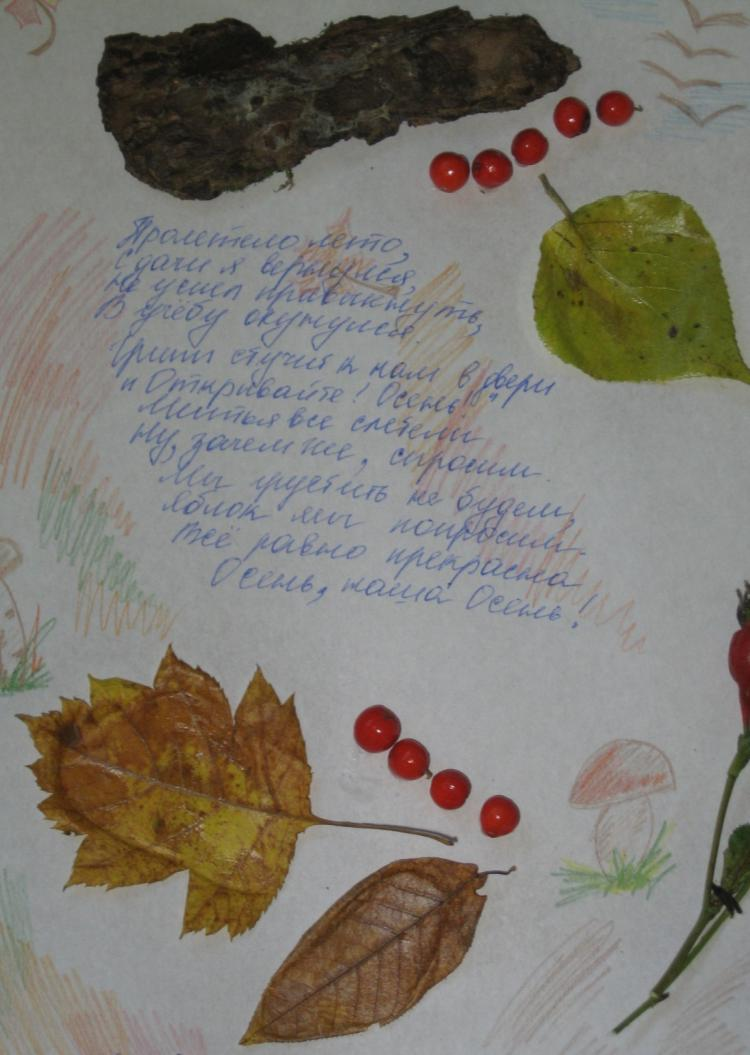 Пролетело лето,
С дачи я вернулся,
Не успел привыкнуть,
В учёбу окунулся.
стучится к нам в двери
"Открывайте! Осень!"
Листья все слетели
Ну, зачем же, спросим
Мы грустить не будем,
Яблок мы попросим.
Всё равно прекрасна
Осень, наша Осень!